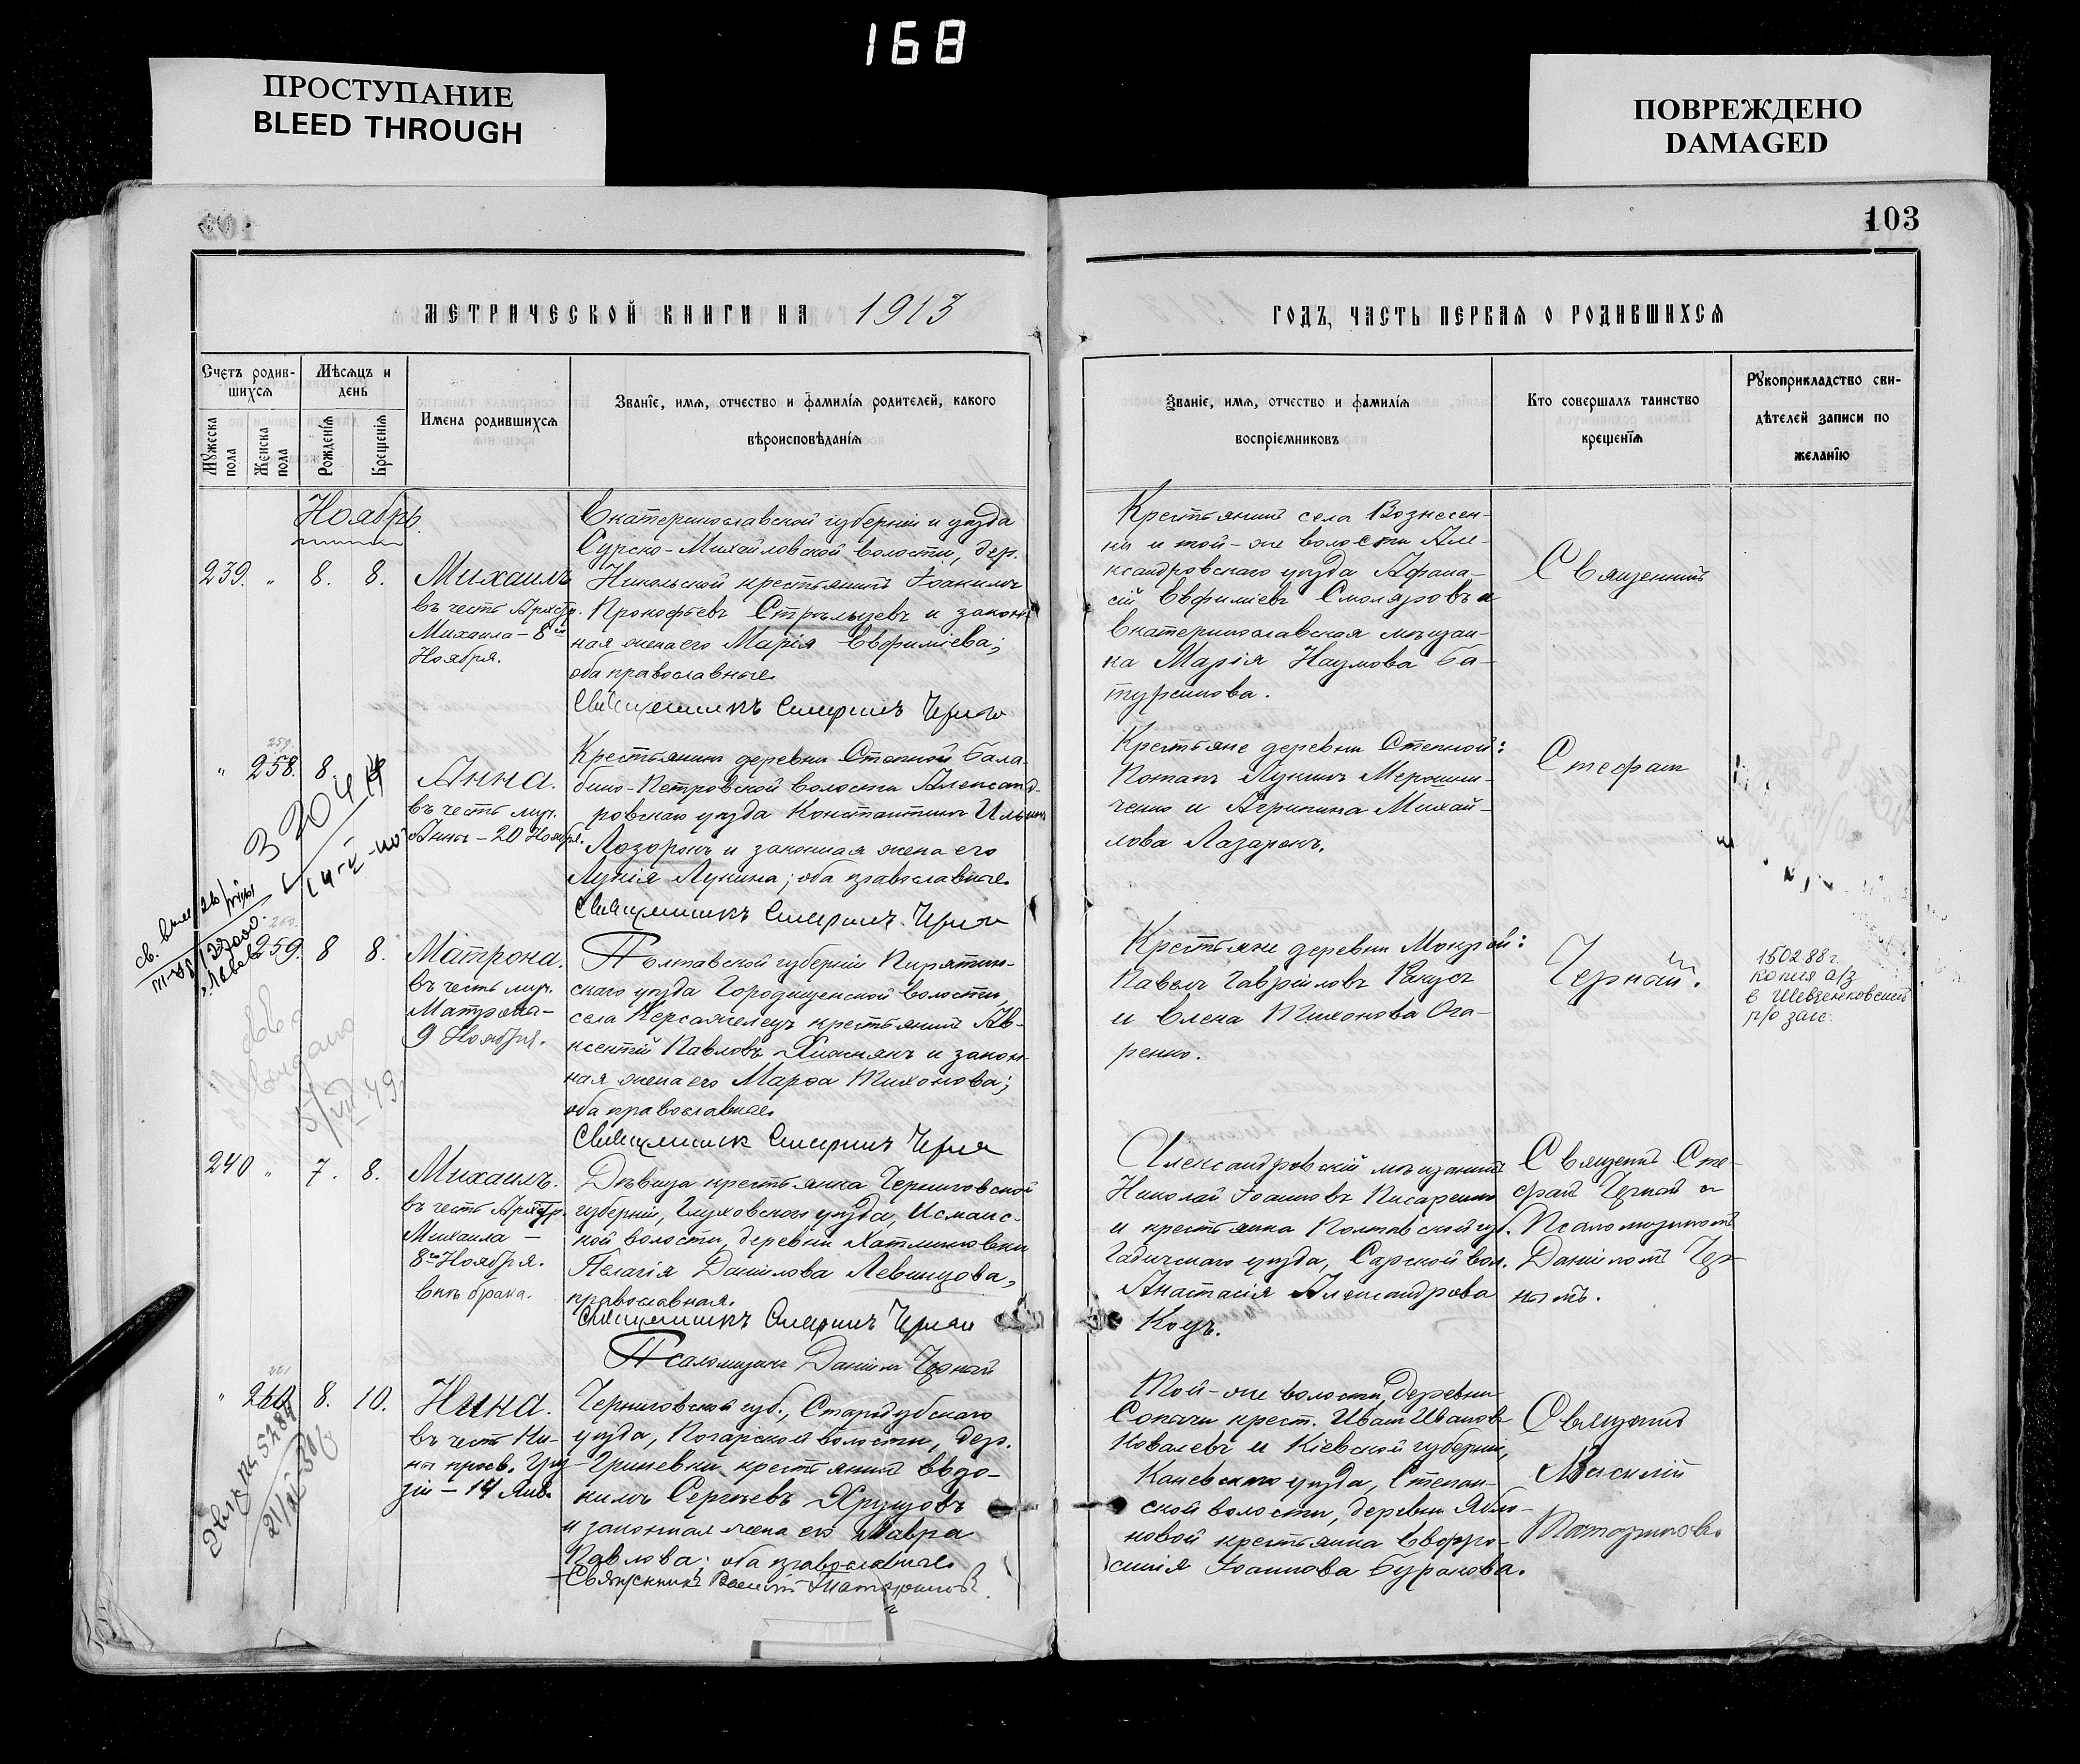 168
ПРОСТУПАНИЕ
BLEED THROUGH
ПОВРЕЖДЕНО
DAMAGED
103
МЕТРИЧЕСКОЙ КНИГИ НА 1913
ГОДЪ, ЧАСТЬ ПЕРВАЯ О РОДИВШИХСЯ
Счетъ родив-
шихся
Мѣсяцъ и
день
Мужеска
пола
Женска
пола
Рожденія
Крещенія
Имена родившихся
Званіе, имя, отчество и фамилія родителей, какого
вѣроисповѣданія
Званіе, имя, отчество и фамилія
воспріемниковъ
Кто совершалъ таинство
крещенія
Рукоприкладство сви-
дѣтелей записи по
желанію
Ноябрь
239. " 8. 8.
Михаилъ
въ честь Архстр.
Михаила – 8го
Ноября.
Екатеринославской губерніи и уѣзда
Сурско-Михайловской волости, дер.
Никольской крестьянинъ Іоакимъ
Прокофьевъ Стрѣльцевъ и закон-
ная жена его Марія Евфиміева;
оба православные.
Священникъ Стефанъ Черный
Крестьянинъ села Вознесен-
ки и той-же волости Але-
ксандровскаго уѣзда Афана-
сій Евфиміевъ Смоляровъ и
Екатеринославская мѣщан-
ка Марія Наумова Ба-
туринова.
Священникъ
259.
" 258. 8
Анна.
въ честь муч.
Анны – 20 Ноября.
Крестьянинъ деревни Степной Бала-
бино-Петровской волости Александ-
ровскаго уѣзда Константинъ Ильинъ
Лозоронъ и законная жена его
Лукія Лукина; оба православные.
Священникъ Стефанъ Черный
Крестьяне деревни Степной:
Потапъ Лукинъ Мерошни-
ченко и Агрипина Михай-
лова Лазаронъ.
Стефанъ
260.
259. 8 8.
Матрона.
въ честь муч.
Матроны –
9 Ноября.
Полтавской губерніи Пирятин-
скаго уѣзда Городищенской волости,
села крестьянинъ Ав-
ксентій Павловъ Хижнякъ и закон-
ная жена его Марѳа Тихонова;
оба православные.
Священникъ Стефанъ Черный
Крестьяне деревни Мокрой:
Павелъ Гавриловъ Ракусъ
и Елена Тихонова Ога-
ренко.
Черный.
150288г.
копия а/з
в Шевченковский
р/о загс.
выдано
5/VIII 49
240 " 7. 8.
Михаилъ.
въ честь Архстр.
Михаила –
8го Ноября.
внѣ брака.
Дѣвица крестьянка Черниговской
губерніи, Глуховскаго уѣзда, Есманс-
кой волости, деревни Хатминовки
Пелагія Данилова Левшукова,
православная.
Священникъ Стефанъ Черный
Псаломщикъ Даніилъ Черный
Александровскій мѣщанинъ
Николай Іоанновъ Писаренко
и крестьянка Полтавской губ.
Гадячскаго уѣзда, Сарской вол.
Анастасія Александрова
Коцъ.
Священ. Сте-
фанъ Черный съ
Псаломщикомъ
Даніиломъ Чер-
нымъ.
261
" 260 8. 10.
Нина.
въ честь Ни-
ны просв. Гру-
зіи – 14 Янв.
Черниговской губ., Стародубскаго
уѣзда, Погарской волости, дер.
Гриневки крестьянинъ Евдо-
кимъ Сергѣевъ Хрущовъ
и законная жена его Мавра
Павлова; оба православные.
Священникъ Василій
Той-же волости, деревни
Сопачи крест. Иванъ Ивановъ
Ковалевъ и Кіевской губерніи,
Каневскаго уѣзда, Степан-
ской волости, деревни Ябло-
новой крестьянка Евфро-
синія Іоаннова Буракова.
Священникъ
Василій